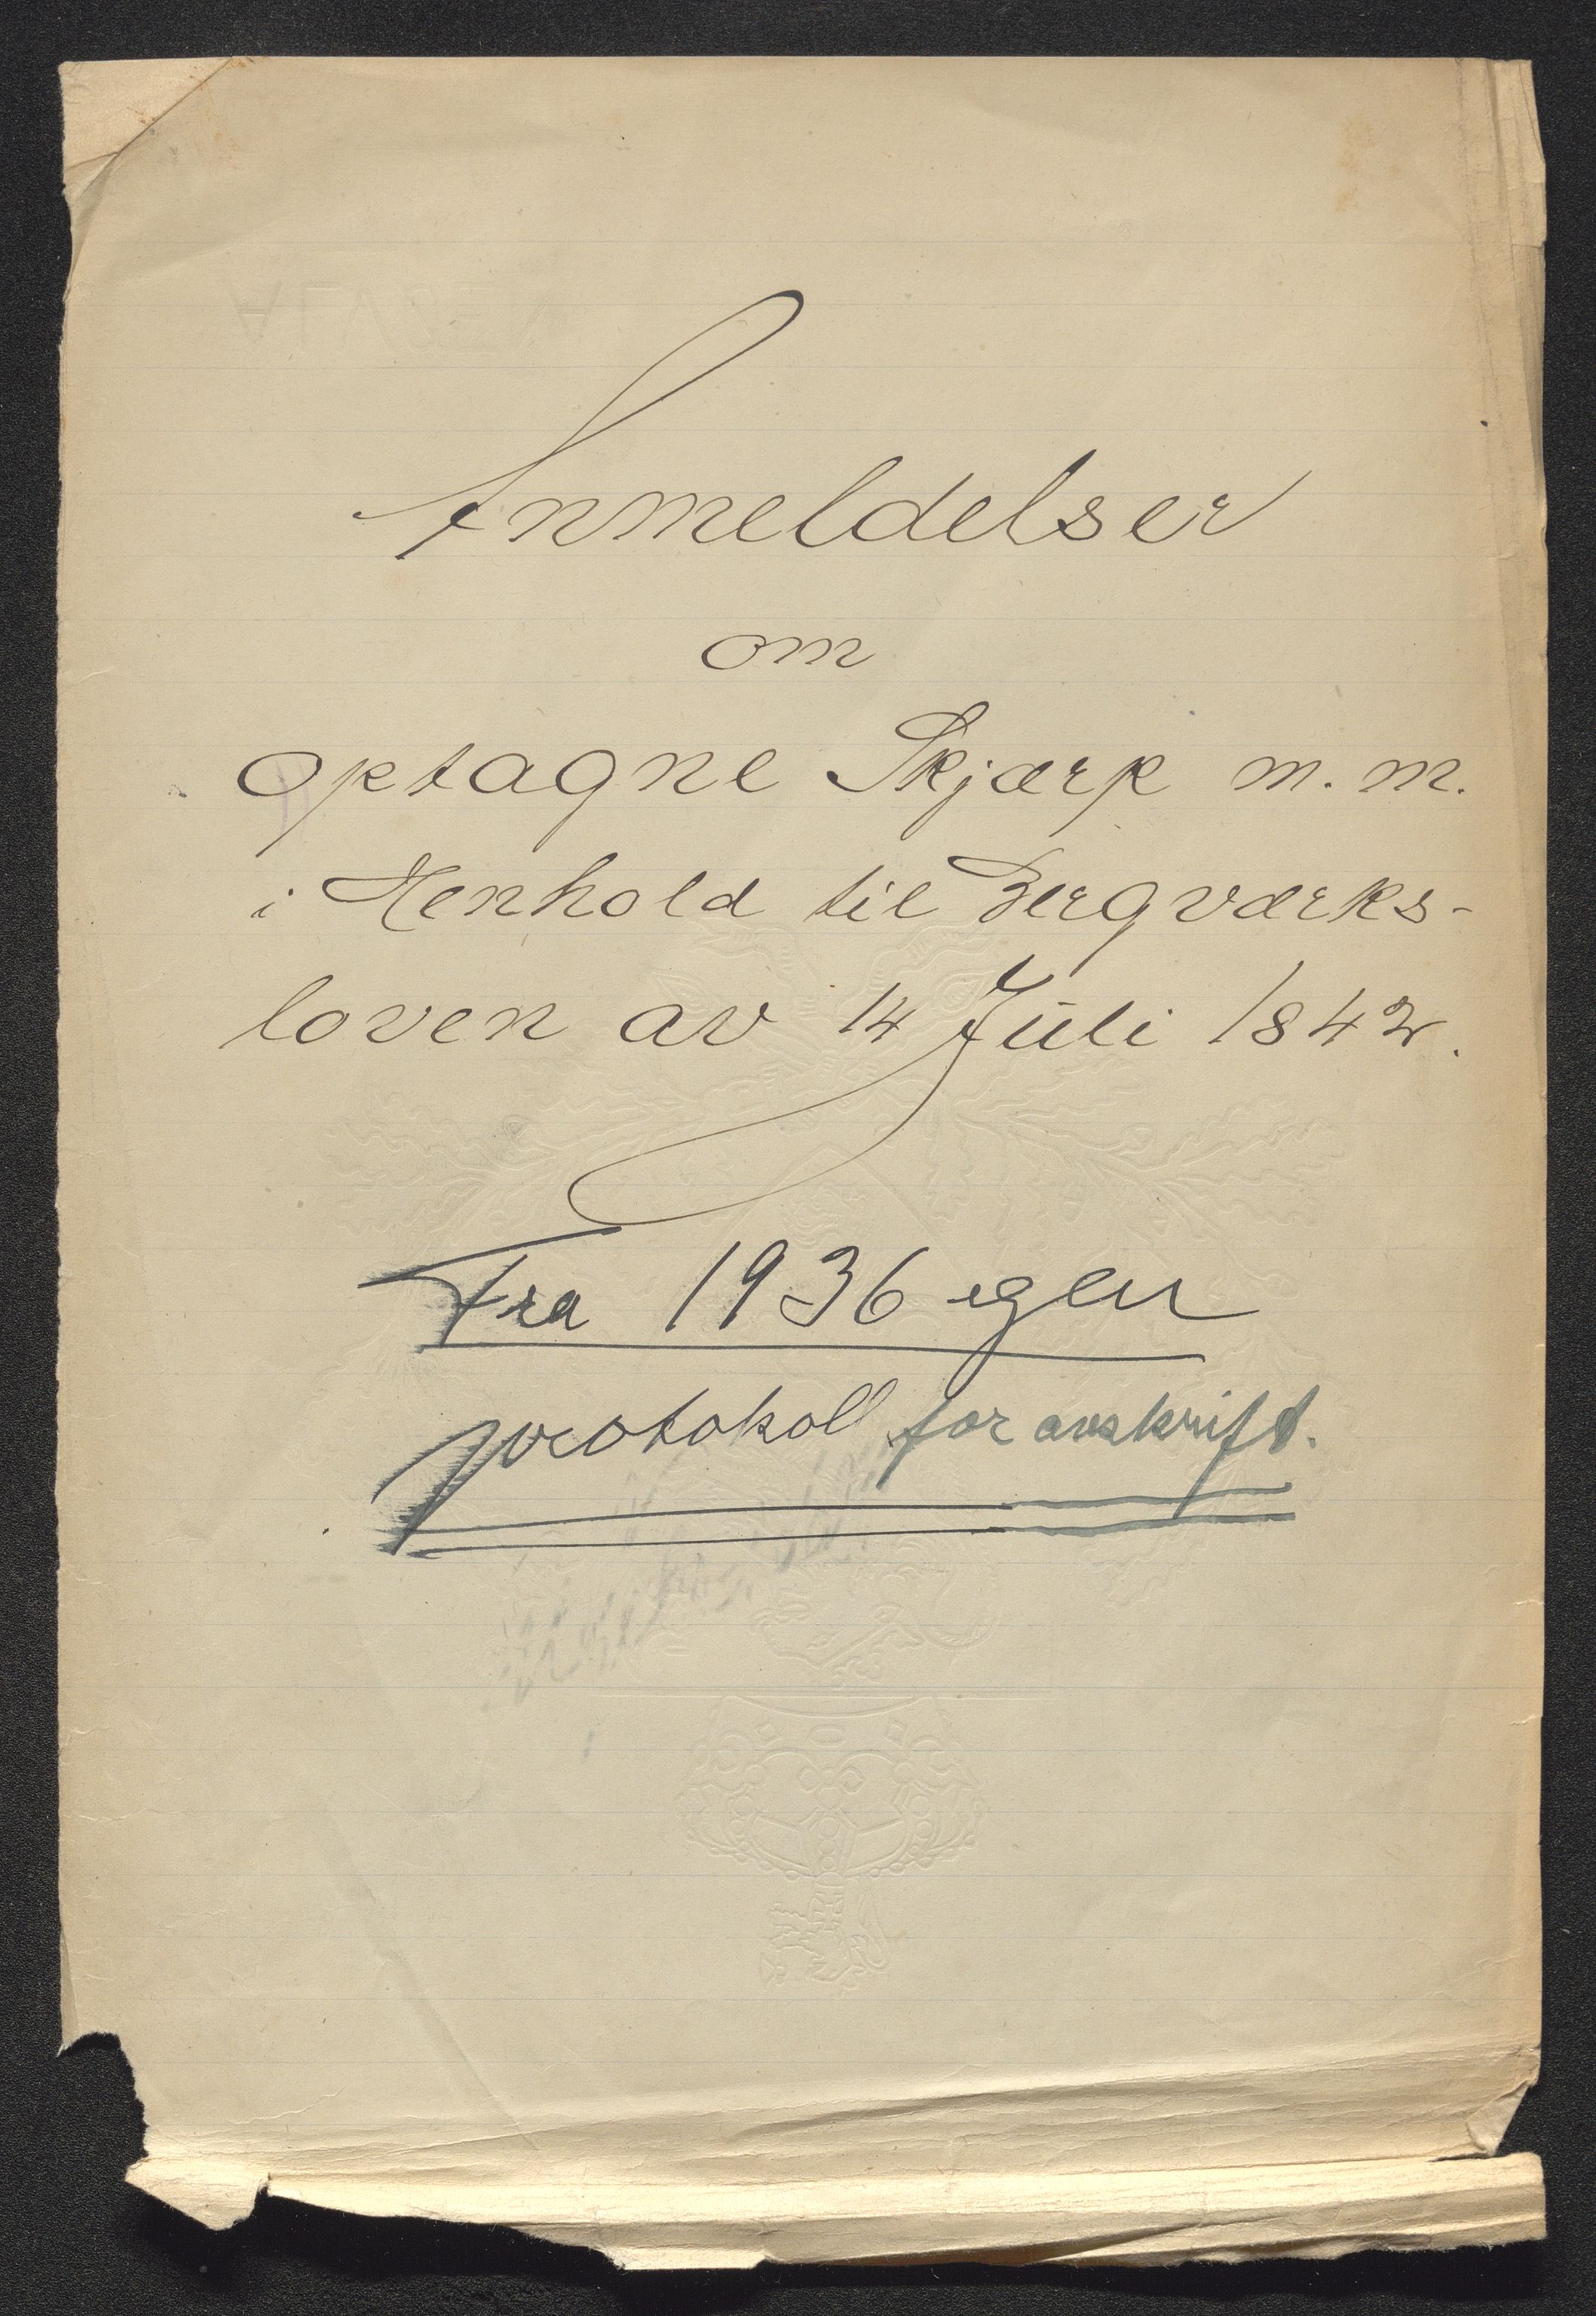 Anmeldelser
om
optagne Skjærp m.m.
i Henhold til Bergværks-
loven av 14 Juli 1842.
Fra 1936 egen
protokoll for avskrift.